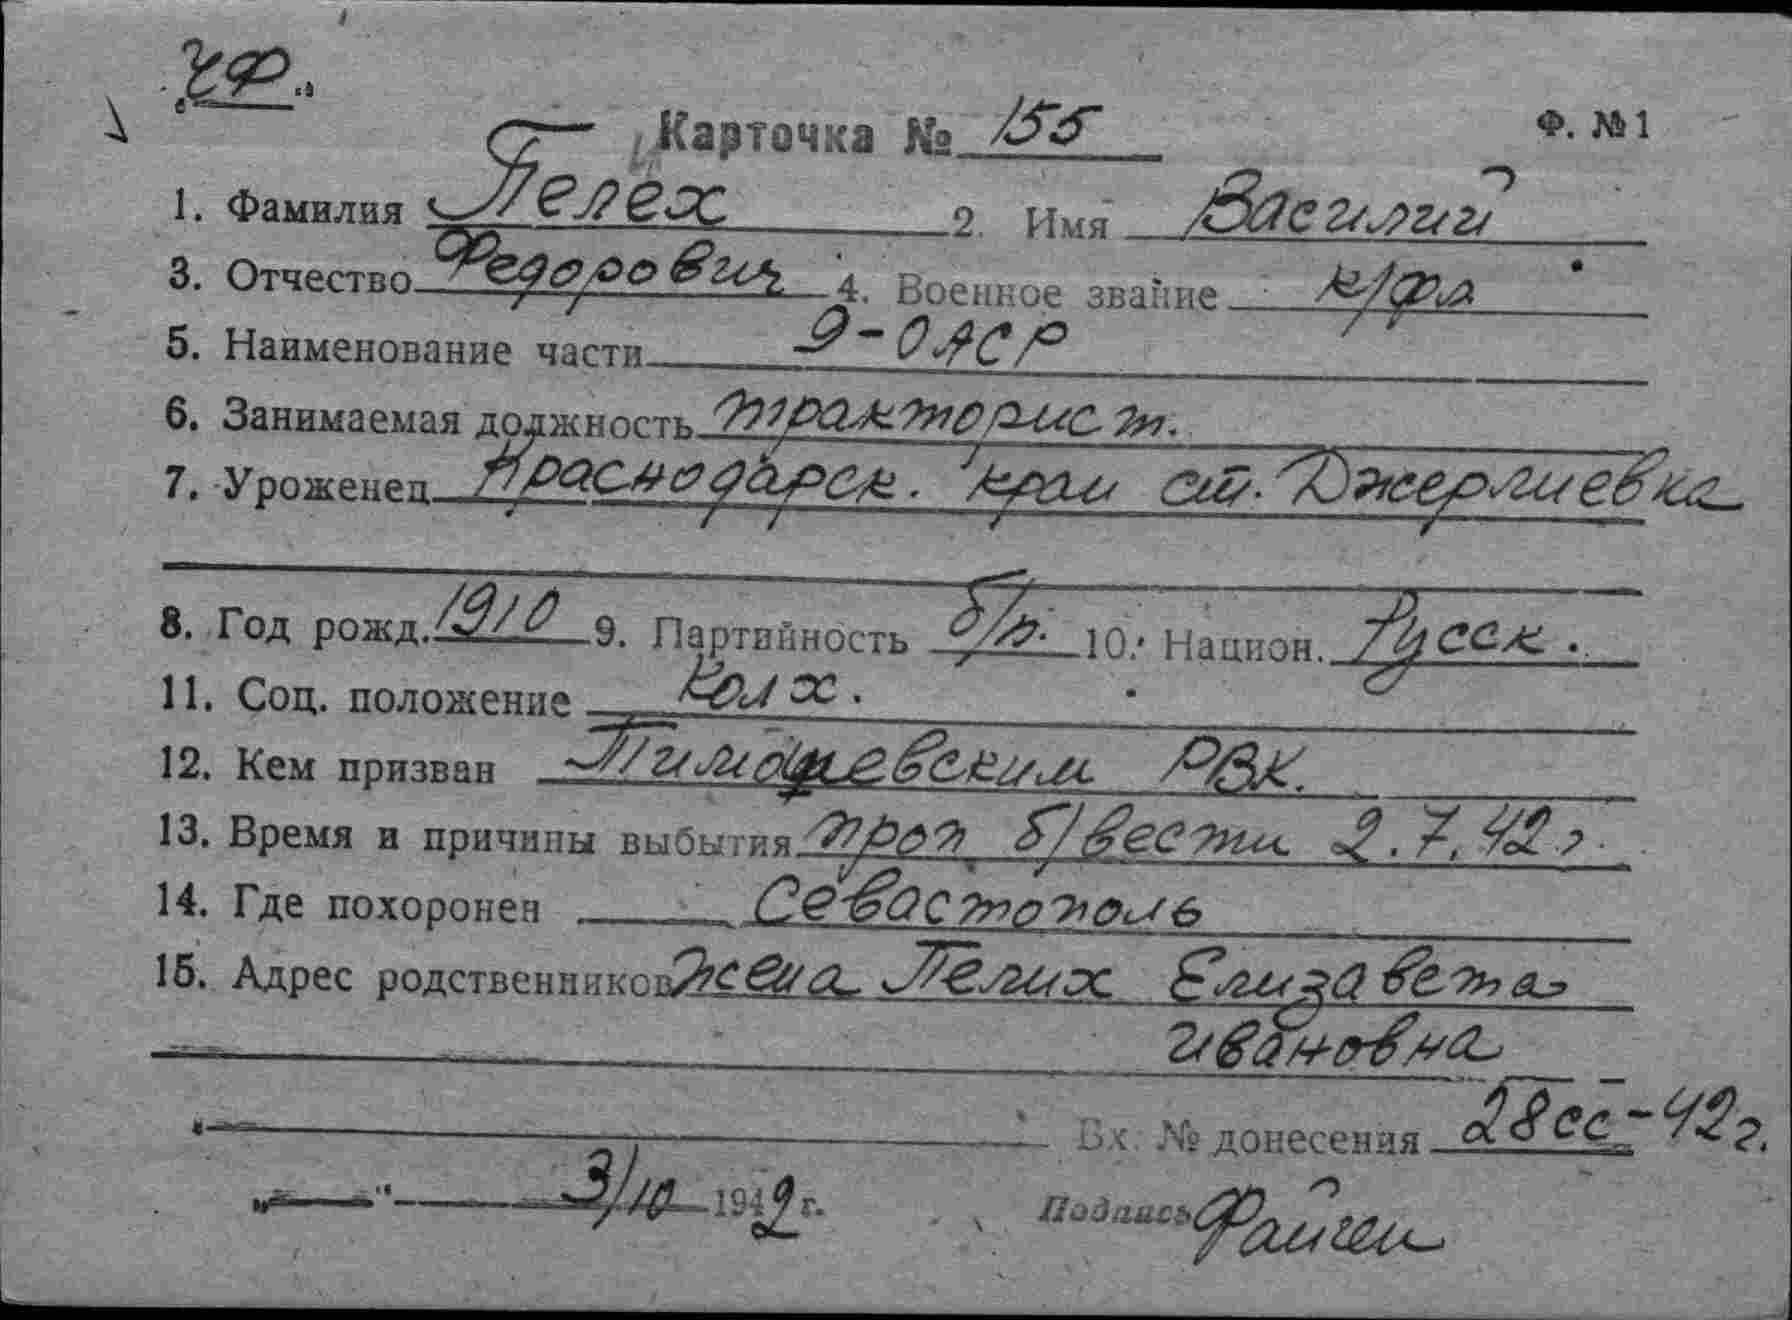 ЧФ.
Карточка № 155 Ф. №1
1. Фамилия Пелех 2. Имя Василий
3. Отчество Федорович 4. Военное звание к/фл
5. Наименование части 9-ОАСР
6. Занимаемая должность тракторист.
7. Уроженец Краснодарск. край ст. Джерлиевка
8. Год рожд. 1910 9. Партийность б/п. 10. Национ. Русск.
11. Соц. положение Колх.
12. Кем призван Тимошевским РВК.
13. Время и причины выбытия проп б/вести 2.7.42 г.
14. Где похоронен Севастополь
15. Адрес родственников Жена Пелих Елизавета
Ивановна
Вх. № донесения 28сс-42г.
„ " 3/10 1942 г. Подпись